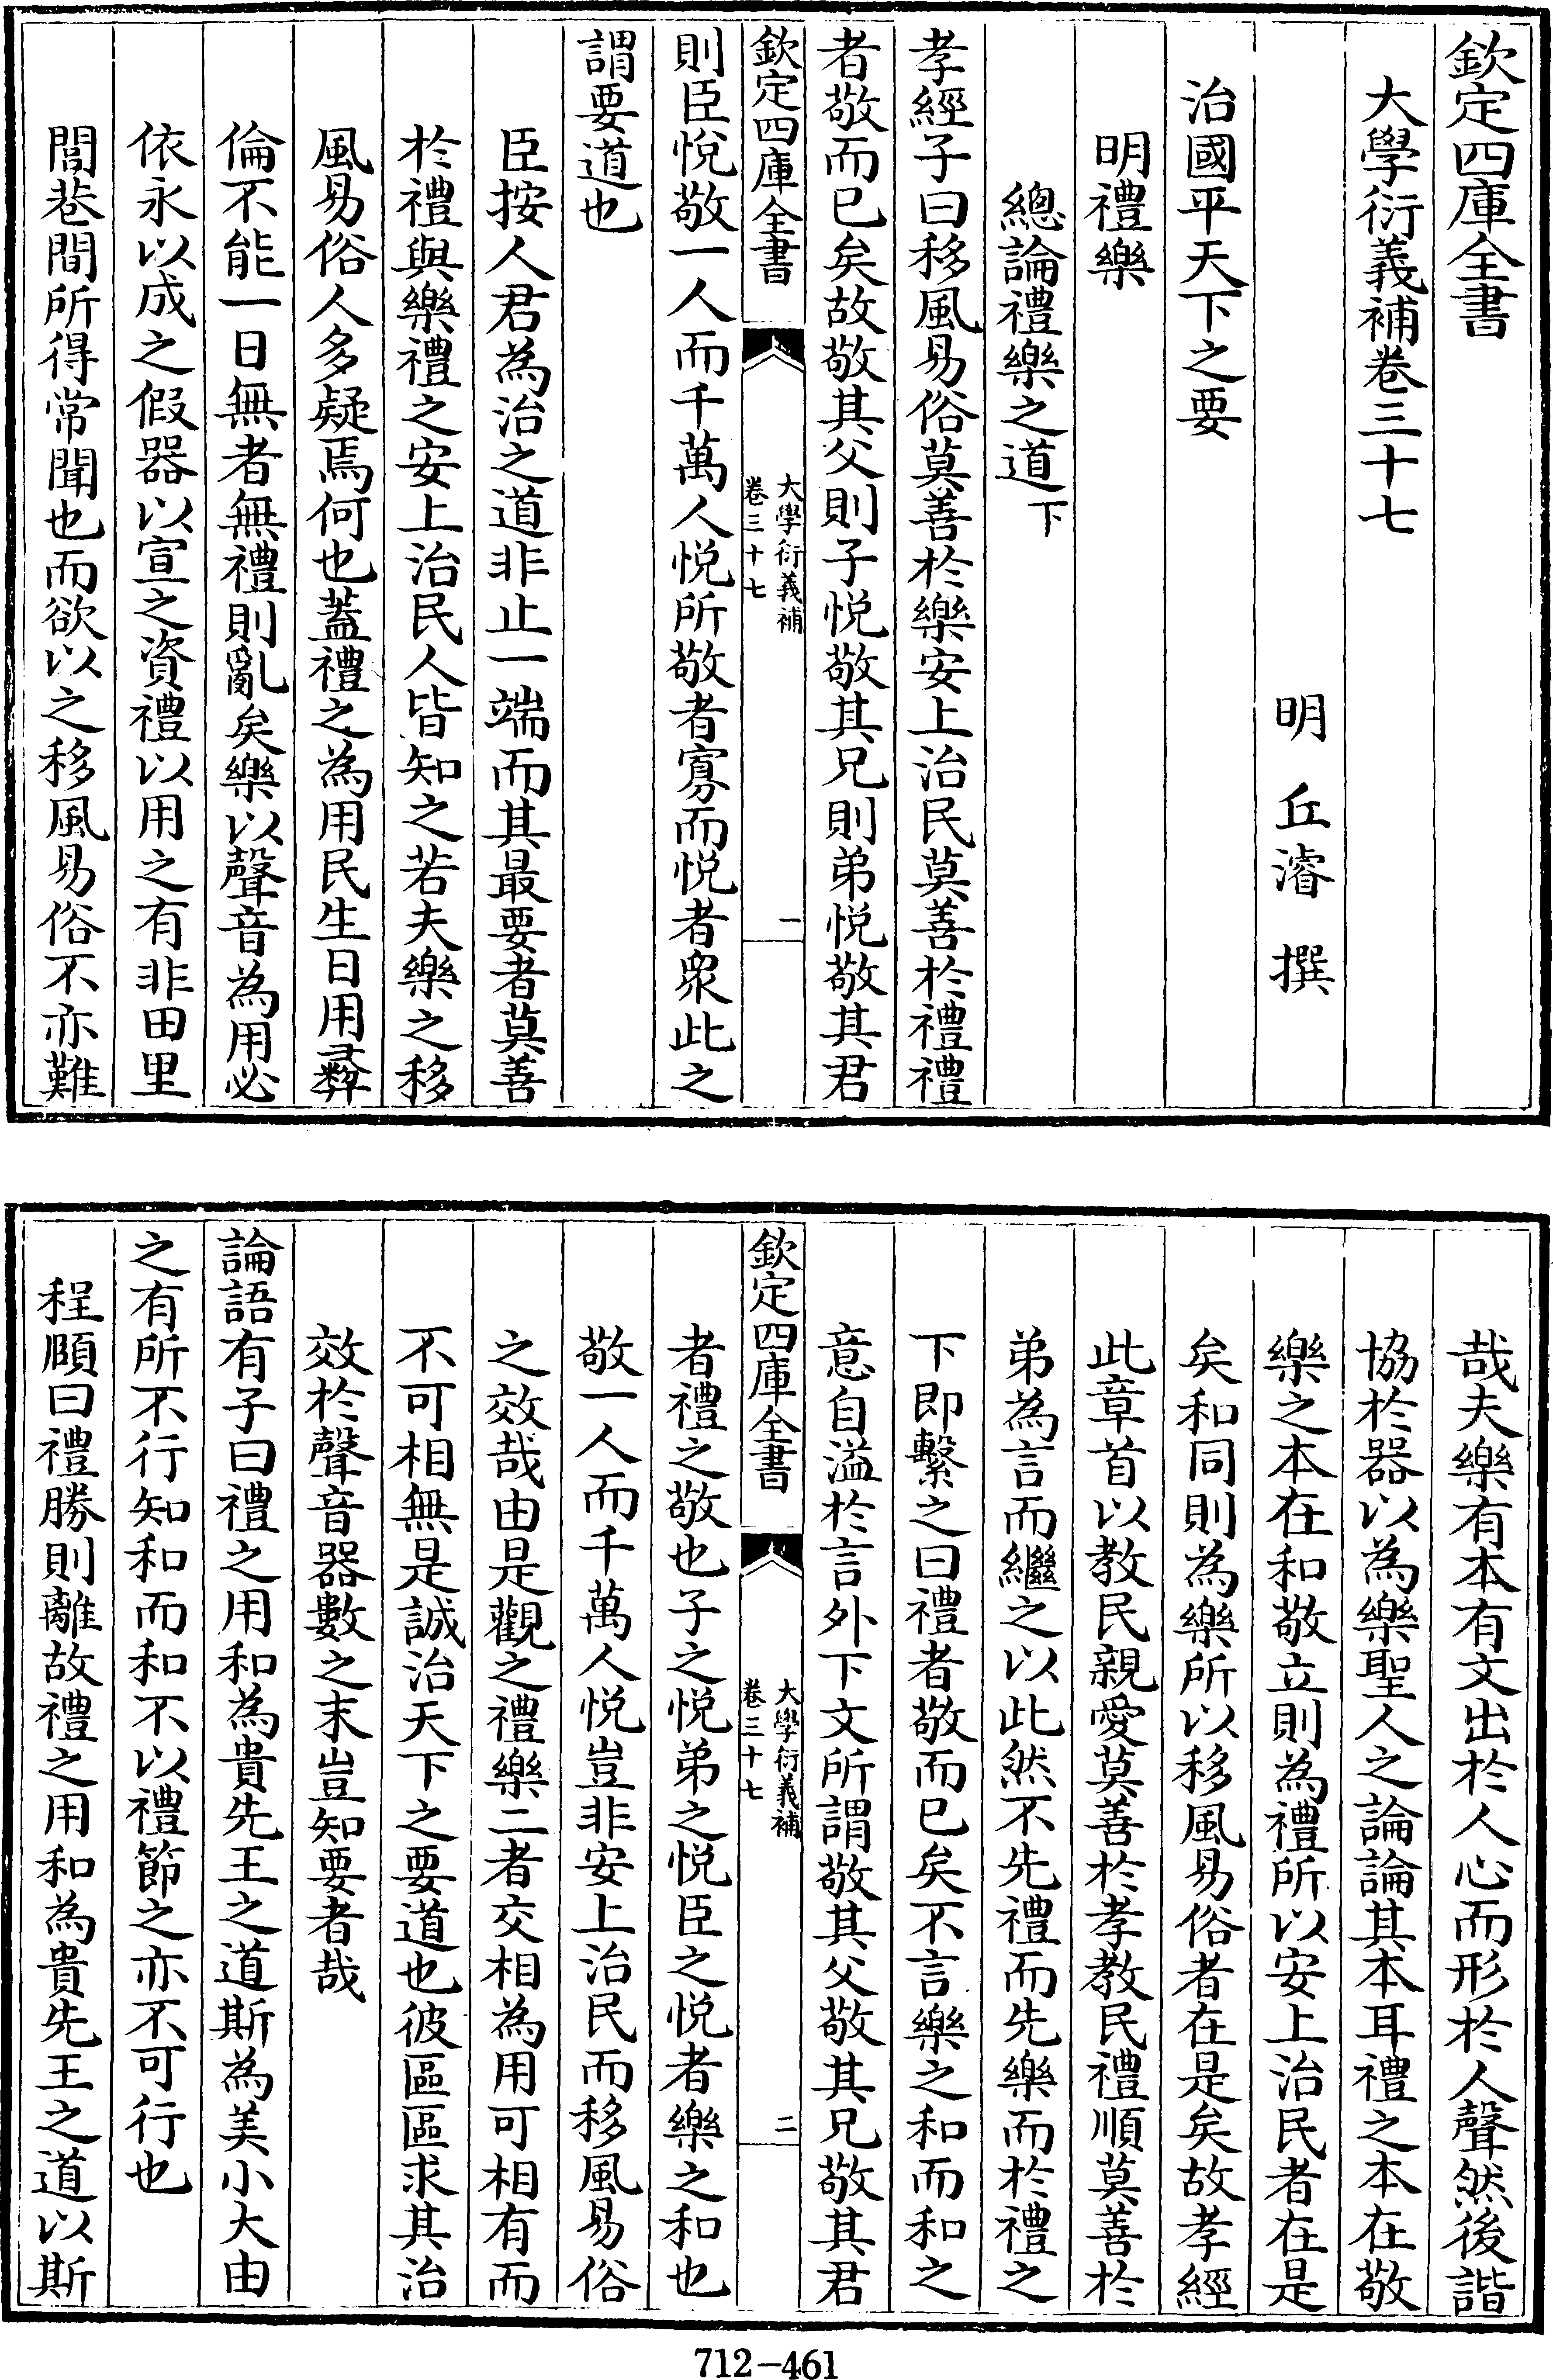 欽定四庫全書
大學衍義補卷三十七
明 丘濬 撰
治國平天下之要
明禮樂
總論禮樂之道下
孝經子曰移風易俗莫善於樂安上治民莫善於禮禮
者敬而已矣故敬其父則子悅敬其兄則弟悅敬其君
欽定四庫全書
大學衍義補
卷三十七
一
則臣悅敬一人而千萬人悅所敬者寡而悅者衆此之
謂要道也
臣按人君為治之道非止一端而其最要者莫善
於禮與樂禮之安上治民人皆知之若夫樂之移
風易俗人多疑焉何也蓋禮之為用民生日用彝
倫不能一日無者無禮則亂矣樂以聲音為用必
依永以成之假器以宣之資禮以用之有非田里
閭巷間所得常聞也而欲以之移風易俗不亦難
哉夫樂有本有文出於人心而形於人聲然後諧
協於器以為樂聖人之論論其本耳禮之本在敬
樂之本在和敬立則為禮所以安上治民者在是
矣和同則為樂所以移風易俗者在是矣故孝經
此章首以教民親愛莫善於孝教民禮順莫善於
弟為言而繼之以此然不先禮而先樂而於禮之
下即繫之曰禮者敬而已矣不言樂之和而和之
意自溢於言外下文所謂敬其父敬其兄敬其君
欽定四庫全書
大學衍義補
卷三十七
二
者禮之敬也子之悅弟之悅臣之悅者樂之和也
敬一人而千萬人悅豈非安上治民而移風易俗
之效哉由是觀之禮樂二者交相為用可相有而
不可相無是誠治天下之要道也彼區區求其治
效於聲音器數之末豈知要者哉
論語有子曰禮之用和為貴先王之道斯為美小大由
之有所不行知和而和不以禮節之亦不可行也
程頤曰禮勝則離故禮之用和為貴先王之道以斯
712-461